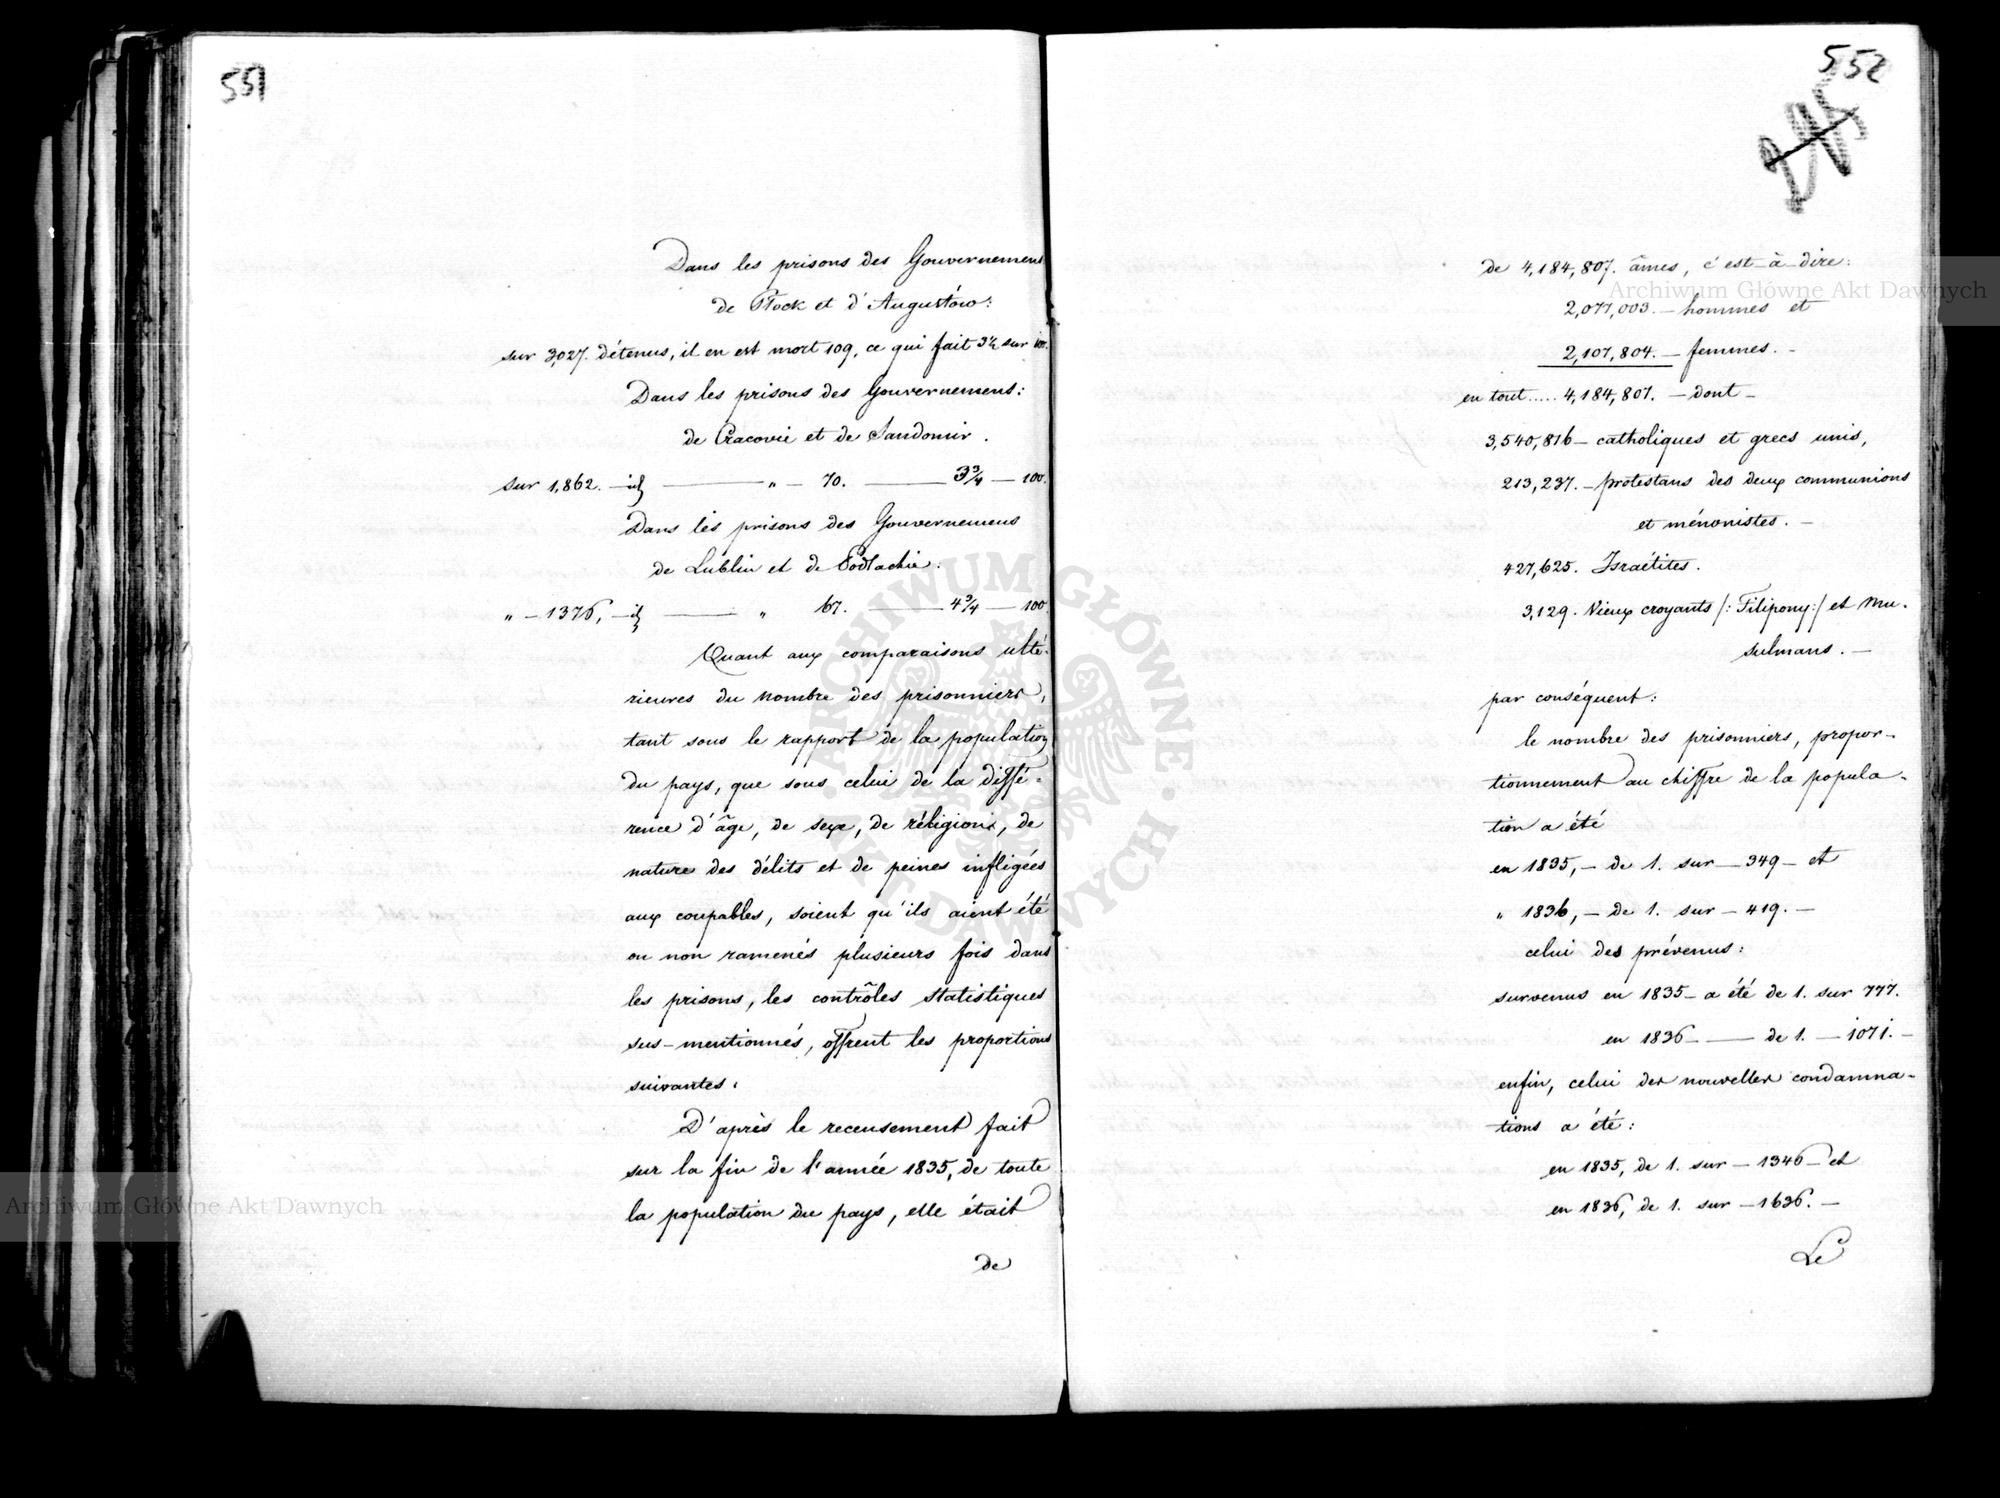 551
Dans les prisons des Gouvernemens
de Płock et d'Augustów:
sur 3027. détenus, il en est mort 109, ce qui fait 3½ sur 100.
Dans les prisons des Gouvernemens:
de Cracovie et de Sandomir.
sur 1,862. — id — " — 70. — 3¾ — 100.
Dans les prisons des Gouvernemens
de Lublin et de Podlachie:
" — 1376, — id — " 67. — 4¾ — 100.
Quant aux comparaisons ulté-
rieures du nombre des prisonniers,
tant sous le rapport de la population
du pays, que sous celui de la diffé-
rence d'âge, de sexe, de réligions, de
nature des délits et de peines infligées
aux coupables, soient qu'ils aient été
ou non ramenés plusieurs fois dans
les prisons, les contrôles statistiques
sus-mentionnés, offrent les proportions
suivantes:
D'après le recensement fait
sur la fin de l'année 1835, de toute
la population du pays, elle était
de
552
de 4,184,807. âmes, c'est-à-dire:
2,077,003. — hommes et
2,107,804. — femmes. —
en tout ..... 4,184,807. — dont —
3,540,816 — catholiques et grecs unis,
213,237. — protestans des deux communions
et ménonistes. —
427,625. Israélites.
3,129. Vieux croyants /: Filipony:/ et Mu-
sulmans. —
par conséquent:
le nombre des prisonniers, propor-
tionnement au chiffre de la popula-
tion a été
en 1835, — de 1. sur — 349 — et
" 1836, — de 1. sur — 419. —
celui des prévenus:
survenus en 1835 — a été de 1. sur 777.
en 1836 — de 1. — 1071. —
enfin, celui des nouvelles condamna-
tions a été:
en 1835, de 1. sur — 1346 — et
en 1836, de 1. sur — 1636. —
Le
Archiwum Główne Akt Dawnych
Archiwum Główne Akt Dawnych
ARCHIWUM GŁÓWNE · AKT DAWNYCH ·